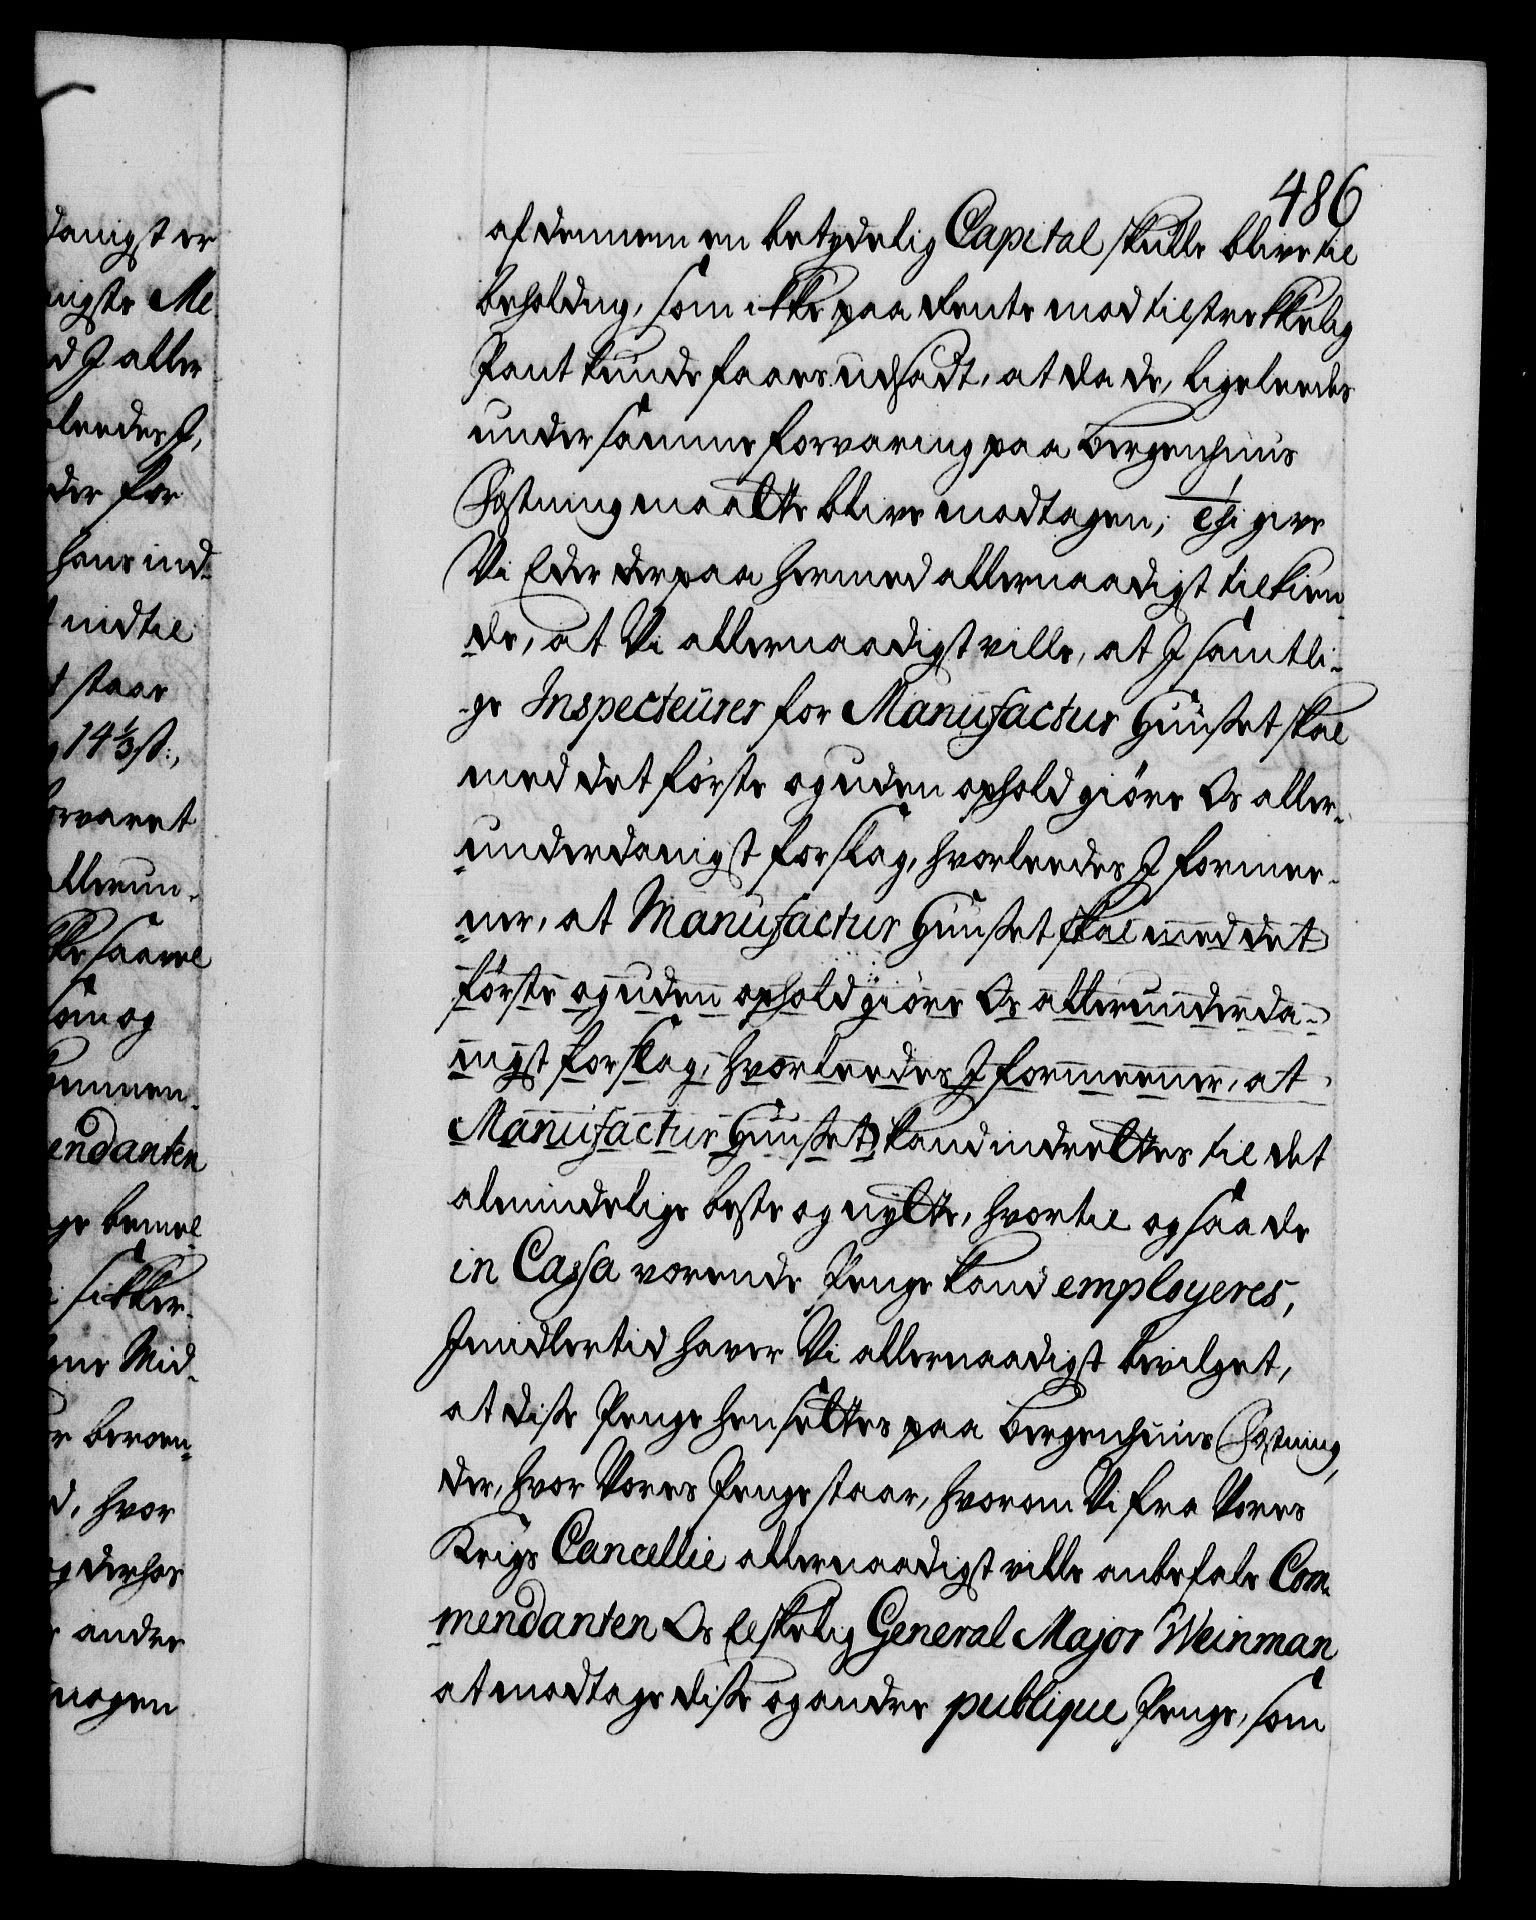 486
danigst er
nigste Me
d I aller
leedes I,
der for
hans ind-
nidtil
t staar
14⅓ ß:,
orvaret
allerun-
ikke saavel
som og
kommen-
endanten
ge bemel-
i sikker-
gne Mid-
r beroen-
d, hvor
og derhos
andre
nogen
af dennem en betydelig Capital skulle blive til
beholdng, som ikke paa Rente mod tilstrekkelig
Pant kunde faaes udsadt, at da de, ligeleedes
under samme forvaring paa Bergenhuus
Fæstning maatte blive modtagen; give
Vi Eder derpaa hermed allernaadigst tilkien-
de, at Vi allernaadigst ville, at I samtli-
-ge Inspecteurer for Manufactur Huuset skal
med det første og uden ophold giøre Os aller-
underdanigst forslag, hvorleedes I formee-
ner, at Manufactur Huuset skal med det
første og uden ophold giøre Os allerunderda-
nigst forslag, hvorleedes I formeener, at
Manufactur Huuset kand indrettes til det
almindelige beste og nytte, hvortil og saa de
in Cassa værende Penge kand employeres,
Imidlertid haver Vi allernaadigst bevilget,
at disse Penge hensettes paa Bergenhuus Fæstning,
der, hvor Vores Penge staar, hvorom Vi fra Vores
Krigs Cancellie allernaadigst ville anbefale Com-
mendanten Os Elskelig General Major Weinman
at modtage disse og andre publique Penge, som